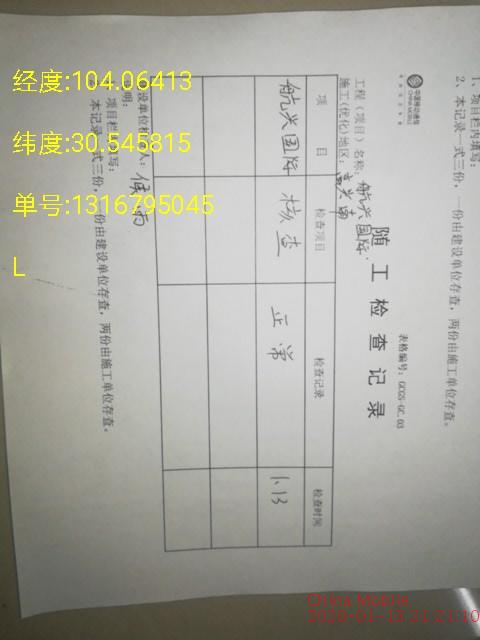 经度:104.06413
纬度:30.545815
单号:1316795045
L
1、项目栏内填写:
2、本记录一式三份,一份由建设单位存查,两份由施工单位存查。
中国移动通信
CHINA MOBILE
表格编号:GCGS-GC.03
随工检查记录
工程(项目)名称:航兴国际
施工(优化)地区:
项目 检查项目 检查记录 检查时间
航兴国际 核查 正常 1.13
项目栏内填写:
本记录一式三份,一份由建设单位存查,两份由施工单位存查。
China Mobile
2020-01-13 21:21:10